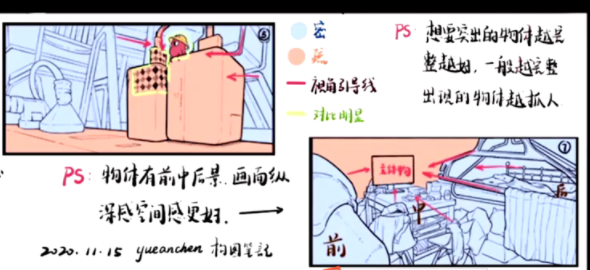 ⑤
密
疏
视角引导线
对比明显
PS: 想要突出的物体越完
整越好,一般越完整
出现的物体越抓人
PS: 物体有前中后景,画面纵
深感空间感更好.
2020.11.15 yueanchen 构图笔记
⑦
主体物
中
后
前